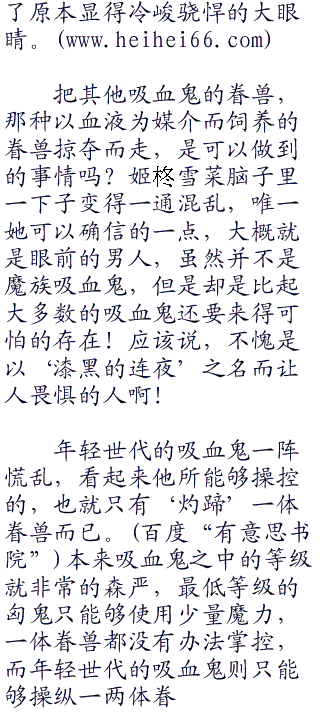 了原本显得冷峻骁悍的大眼
睛。(www.heihei66.com)
把其他吸血鬼的眷兽，
那种以血液为媒介而饲养的
眷兽掠夺而走，是可以做到
的事情吗？姬柊雪菜脑子里
一下子变得一通混乱，唯一
她可以确信的一点，大概就
是眼前的男人，虽然并不是
魔族吸血鬼，但是却是比起
大多数的吸血鬼还要来得可
怕的存在！应该说，不愧是
以‘漆黑的连夜’之名而让
人畏惧的人啊！
年轻世代的吸血鬼一阵
慌乱，看起来他所能够操控
的，也就只有‘灼蹄’一体
眷兽而已。(百度“有意思书
院”)本来吸血鬼之中的等级
就非常的森严，最低等级的
匈鬼只能够使用少量魔力，
一体眷兽都没有办法掌控，
而年轻世代的吸血鬼则只能
够操纵一两体眷